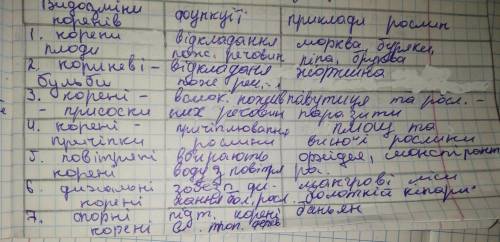 Видозміни коренів функції приклади рослин
1. корени плоди відкладання пож. речовин морква, буряки, ріпа, бруква
2. кореневі - бульби відкладання пож. реч. жоржина
3. корені - - присоски всмок. поживних речовин павутиця та росл. - паразити
4. корені - причіпки причіплювання рослини плющ та виткі рослини
5. повітряні корені вбирають воду з повітря орхідея,
6. дихальні корені мангрові ліси болотний кипарис
7. опорні корені підт. корені баньян